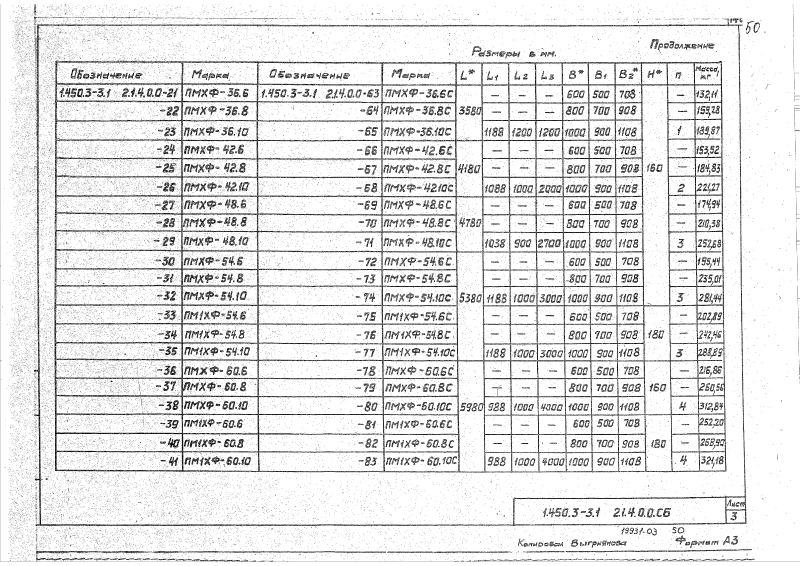 50.
Размеры в мм.
Продолжение
Обозначение Марка Обозначение Марка L* L1 L2 L3 B* B1 B2* H* n Масса, кг
1.450.3-3.1 2.1.4.0.0-21 ПМХФ-36.6 1.450.3-3.1 2.1.4.0.0-63 ПМХФ-36.6С — — — 600 500 708 — 132,11
-22 ПМХФ-36.8 -64 ПМХФ-36.8С 3580 — — — 800 700 908 — 159,28
-23 ПМХФ-36.10 -65 ПМХФ-36.10С 1188 1200 1200 1000 900 1108 1 189,87
-24 ПМХФ-42.6 -66 ПМХФ-42.6С — — — 600 500 708 — 153,52
-25 ПМХФ-42.8 -67 ПМХФ-42.8С 4180 — — — 800 700 908 160 — 184,83
-26 ПМХФ-42.10 -68 ПМХФ-42.10С 1088 1000 2000 1000 900 1108 2 221,27
-27 ПМХФ-48.6 -69 ПМХФ-48.6С — — — 600 500 708 — 174,94
-28 ПМХФ-48.8 -70 ПМХФ-48.8С 4780 — — — 800 700 908 — 210,38
-29 ПМХФ-48.10 -71 ПМХФ-48.10С 1038 900 2700 1000 900 1108 3 252,68
-30 ПМХФ-54.6 -72 ПМХФ-54.6С — — — 600 500 708 — 195,44
-31 ПМХФ-54.8 -73 ПМХФ-54.8С — — — 800 700 908 — 235,01
-32 ПМХФ-54.10 -74 ПМХФ-54.10С 5380 1188 1000 3000 1000 900 1108 3 281,44
-33 ПМ1ХФ-54.6 -75 ПМ1ХФ-54.6С — — — 600 500 708 — 202,89
-34 ПМ1ХФ-54.8 -76 ПМ1ХФ-54.8С — — — 800 700 908 180 — 242,46
-35 ПМ1ХФ-54.10 -77 ПМ1ХФ-54.10С 1188 1000 3000 1000 900 1108 3 288,89
-36 ПМХФ-60.6 -78 ПМХФ-60.6С — — — 600 500 708 — 216,86
-37 ПМХФ-60.8 -79 ПМХФ-60.8С — — — 800 700 908 160 — 260,56
-38 ПМХФ-60.10 -80 ПМХФ-60.10С 5980 988 1000 4000 1000 900 1108 4 312,84
-39 ПМ1ХФ-60.6 -81 ПМ1ХФ-60.6С — — — 600 500 708 — 252,20
-40 ПМ1ХФ-60.8 -82 ПМ1ХФ-60.8С — — — 800 700 908 180 — 268,90
-41 ПМ1ХФ-60.10 -83 ПМ1ХФ-60.10С 988 1000 4000 1000 900 1108 4 321,18
1.450.3-3.1 2.1.4.0.0.СБ Лист
3
19931-03 50
Копировал Выгриянова Формат А3